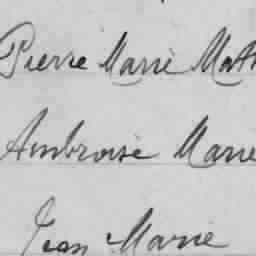 Pierre Marie Math
Ambroise Marie
Jean Marie